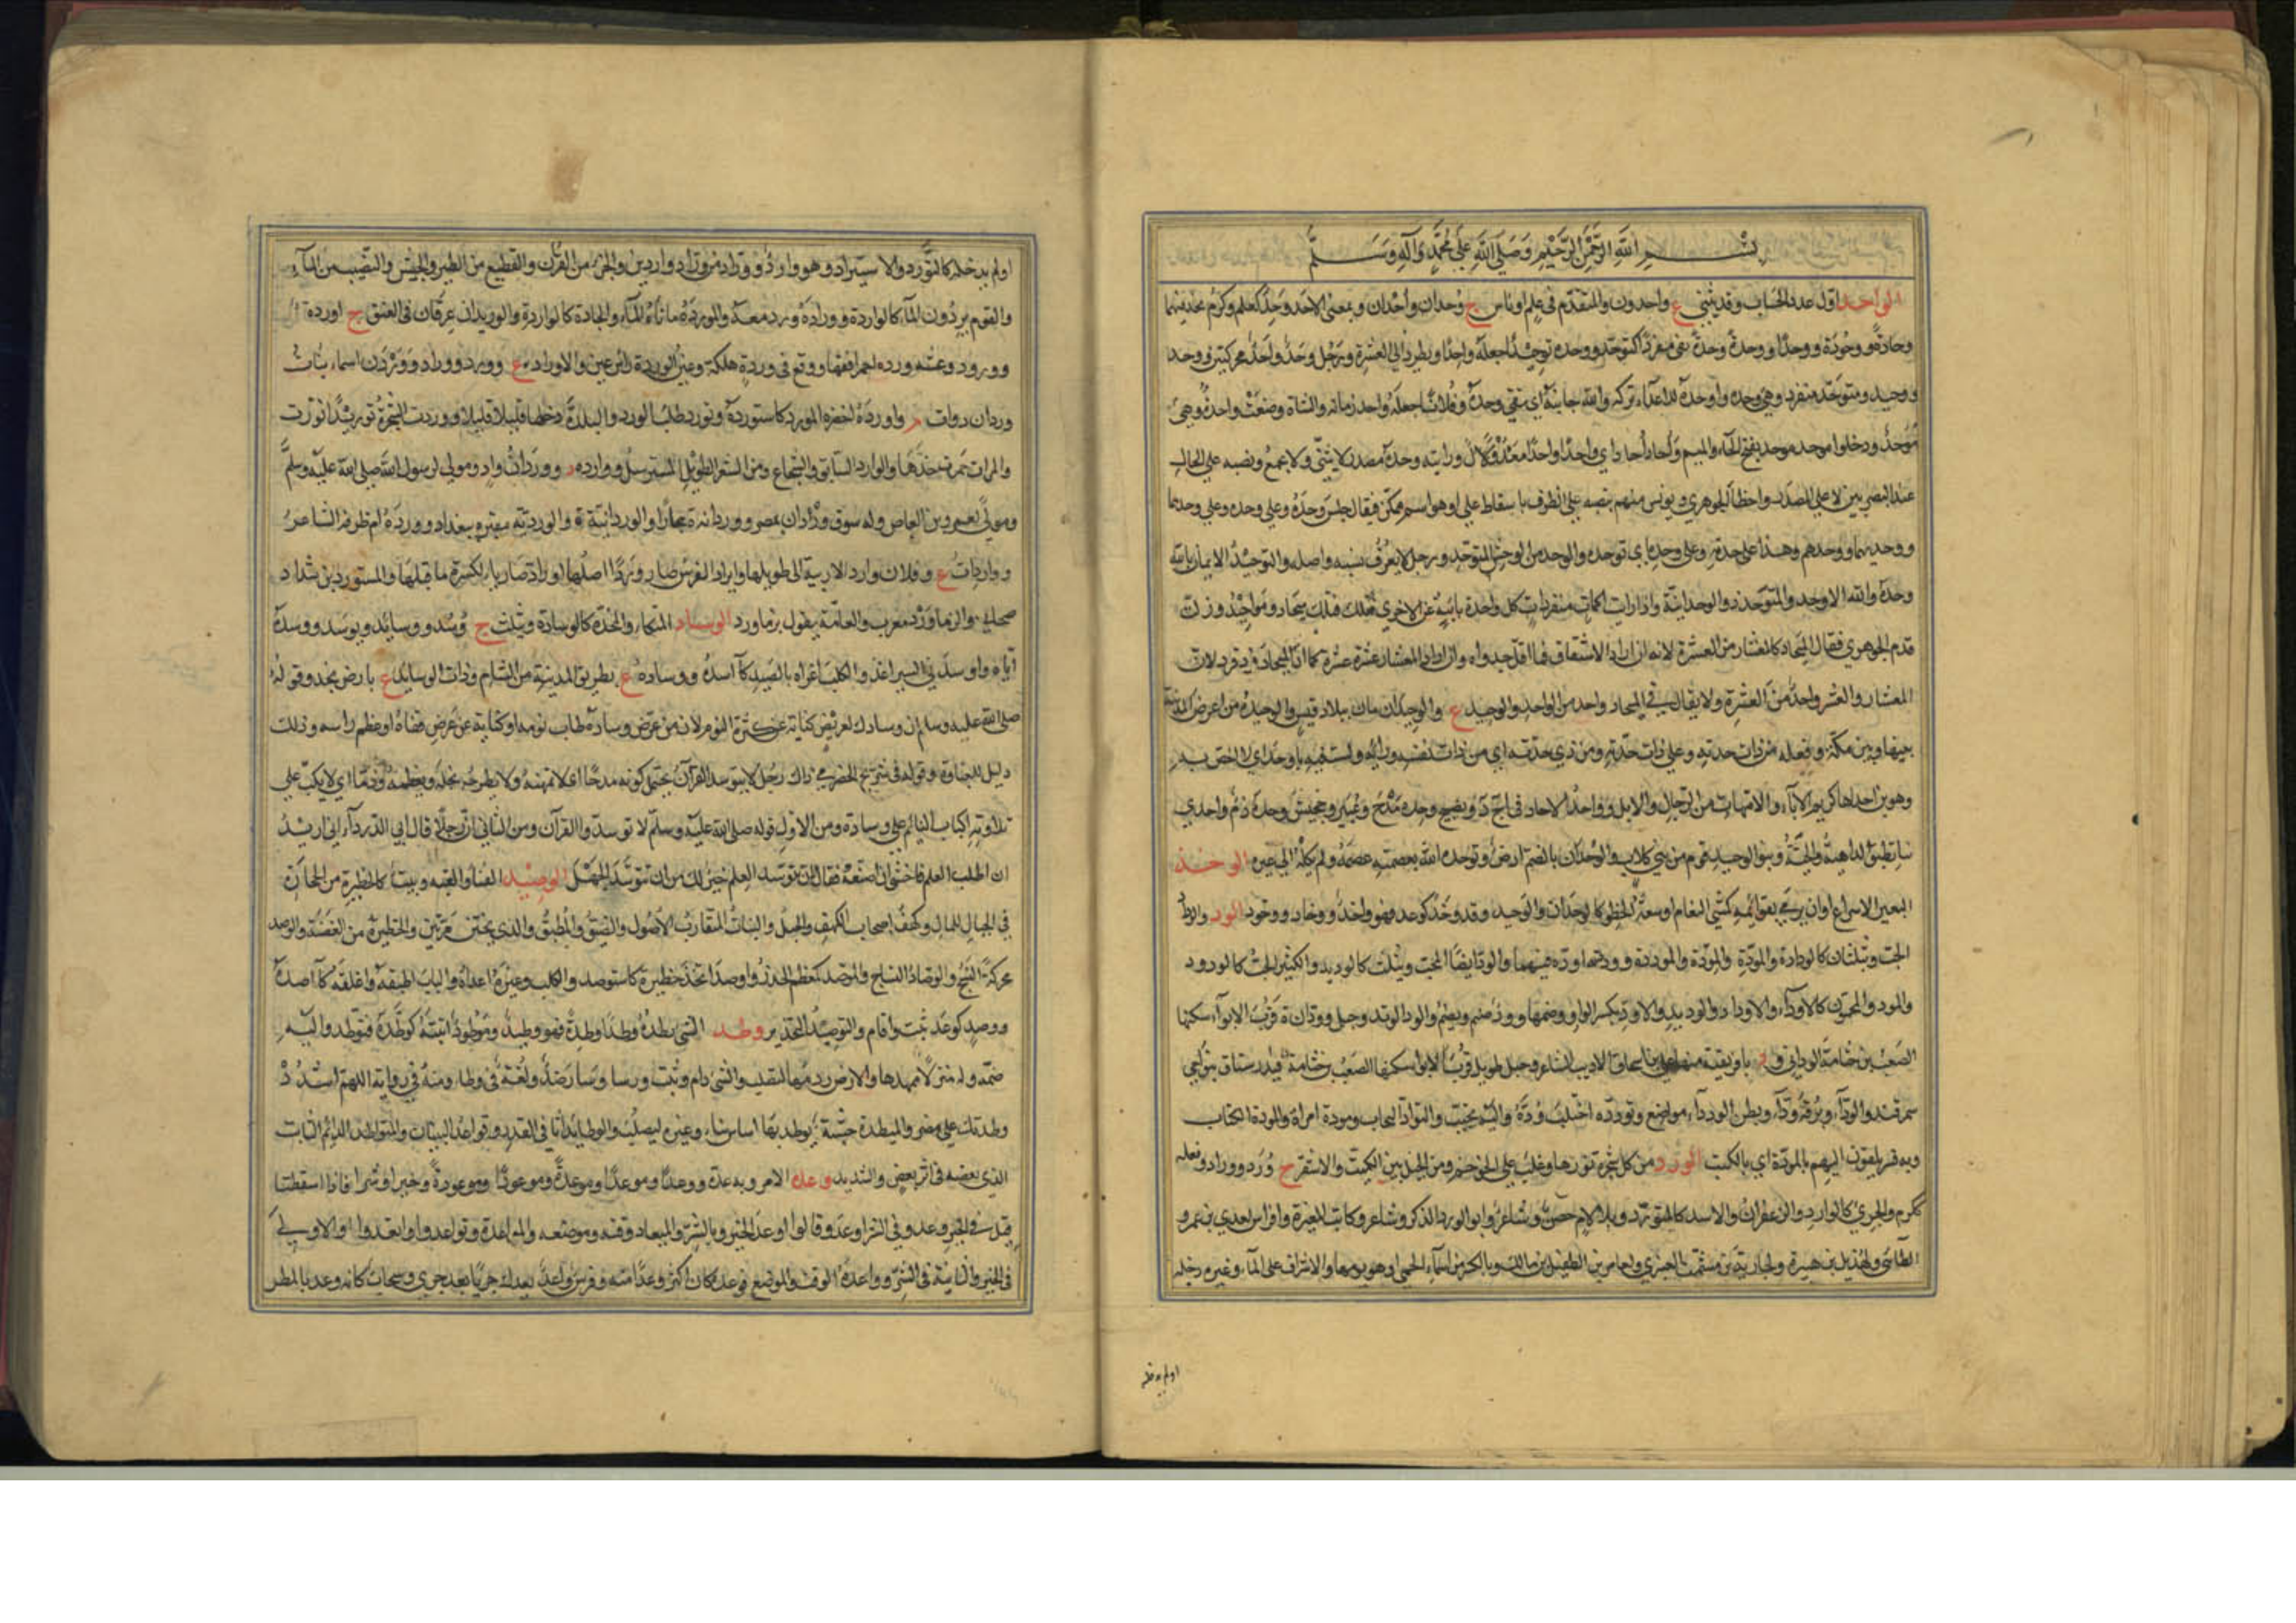 بسم الله الرحمن الرحيم وصلى الله على محمد وآله وسلم
الواحد اول عدد الحساب وقد يثنى ع واحدون والمتقدم فى علم او باس ج وحدان واحدان وبمعنى الاحد وحد كعلم وكرم يحد فيهما
وحادة ووحودة ووحدا ووحدة وحدة بقى مفردا كتوحد ووحده توحيدا جعله واحدا ويطرد الى العشرة ورجل وحد واحد محركتين ووحد
ووحيد ومتوحد منفرد وهى وحدة واوحده للاعداء تركه والله جانبه اى بقى وحده وفلانا جعله واحد زمانه والشاة وضعت واحدة وهى
موحد ودخلوا موحد موحد بفتح الحاء والميم واحاد احاد اى واحدا واحدا معدول ورايته وحده مصدر لا يثنى ولا يجمع ونصبه على الحال
عند البصريين لا على المصدر واخطأ الجوهري ويونس منهم ينصبه على الظرف باسقاط على او هو اسم ممكن فيقال جلس وحده وعلى وحده وعلى وحدهما
ووحديهما ووحدهم وهذا على حدته وعلى وحده اى توحده والوحد من الوحش المتوحد ورجل لا يعرف نسبه واصله والتوحيد الايمان بالله
وحده والله الاوحد والمتوحد ذو الوحدانية واذا رايت اكمات منفردات كل واحدة بائنة عن الاخرى فتلك ميحاد ومواحيد وزلت
قدم الجوهري فقال الميحاد كالمعشار من العشرة لانه ان اراد الاشتقاق فما اقل جدواه وان اراد المعشار عشرة عشرة كما ان الميحاد فرد فرد لان
المعشار والعشر واحد من العشرة ولا يقال فى الميحاد واحد من الواحد والوحيد ع والوحيدان ماآن ببلاد قيس والوحيدة من اعراض المدينة
بينها وبين مكة وفعله من ذات حدته وعلى ذات حدته ومن ذى حدته اى من ذات نفسه ورايه ولست فيه باوحد اى لا اخص به
وهو بن احداها كريم الآباء والامهات من الرجال والابل وواحد الاحاد فى احد ونسيج وحده مدح وعيير وجحيش وحده ذم واحدى
بنات طبق الداهية والحية وبنو الوحيد قوم من بنى كلاب والوحدان بالضم ارض وتوحده الله بعصمته عصمه ولم يكله الى غيره الوخد
للبعير الاسراع او ان يرمى بقوائمه كمشى النعام او سعة الخطو كالوخدان والوخيد وقد وخد كوعد فهو واخد ووخاد ووخود الود والوداد
الحب ويثلثان كالودادة والمودة والموددة وودته اوده فيهما والود ايضا المحب ويثلث كالوديد والكثير الحب كالودود
والمود والمحبون كالاوداء والاوداد والوديد والاود بكسر الواو وضمها وود صنم ويضم والود الوتد وجبل وودان ة قرب الابواء سكنها
الصعب بن جثامة الودانى و د بافريقية منها على بن اسحاق الاديب الشاعر وجبل طويل قرب الابواء سكنها الصعب بن جثامة ورستاق بنواحى
سمرقند والوداء وبرقة وداء وبطن الودداء مواضع وتودده اجتلب وده واليه تحبب والتواد التحاب ومودة امراة والمودة الكتاب
وبه فسر تلقون اليهم بالمودة اى بالكتب الورد من كل شجرة نورها وغلب على الحوجم ومن الخيل بين الكميت والاشقر ج ورد ووراد وفعله
ككرم والجرئ كالوارد والزعفران والاسد كالمتورد وبلا لام حصن وشاعر وابو الورد الذكر وشاعر وكاتب المغيرة وافراس لعدى بن عمرو
الطائى ولهذيل بن هبيرة ولجارية بن مشمت العنبرى ولعامر بن الطفيل بن مالك وبالكسر من اسماء الحمى او هو يومها والاشراف على الماء وغيره دخله
او لم يدخله
او لم يدخله كالتورد والاستيراد وهو وارد ووراد من وراد وواردين والجزء من القرآن والقطيع من الطير والجيش والنصيب من الماء
والقوم يردون الماء كالواردة ووارده ورد معه والموردة ماتاة الماء والجادة كالواردة والوريدان عرقان فى العنق ج اوردة
وورود وعشية وردة احمر افقها ووقع فى وردة هلكة وعين الوردة راس عين والاوراد ع وورد ووراد ووردان اسماء وبنات
وردان دواب م واورده احضره المورد كاستورده وتورد طلب الورد والبلدة دخلها قليلا قليلا ووردت الشجرة توريدا نورت
والمراة حمرت خدها والوارد السابق والشجاع ومن الشعر الطويل المسترسل وواردة د ووردان واد ومولى لرسول الله صلى الله عليه وسلم
ومولى لعمرو بن العاص وله سوق وردان بمصر ووردانة ة ببخارا والوردانية ة والوردية مقبرة ببغداد ووردة ام طرفة الشاعر
وواردات ع وفلان وارد الارنبة اى طويلها وايراد الفرس صار وردا اصلها اوراد صارياء لكسرة ما قبلها والمستورد بن شداد
صحابى والزماورد معرب والعامة يقول بزماورد الوساد المتكاء والمخدة كالوسادة ويثلث ج وسد ووسائد وتوسد ووسده
اياه واوسد فى السير اغذ والكلب اغراه بالصيد كآسده ووسادة ع بطريق المدينة من الشام وذات الوسائد ع بارض نجد وقوله
صلى الله عليه وسلم ان وسادك لعريض كناية عن كثرة النوم لان من عرض وساده طاب نومه او كناية عن عرض قفاه او عظم راسه وذلك
دليل الغباوة وقوله فى شريح الحضرمى ذاك رجل لا يتوسد القرآن يحتمل كونه مدحا اى لا يمتهنه ولا يطرحه بل يجله ويعظمه وذما اى لا يكب على
تلاوته اكباب النائم على وسادة ومن الاول قوله صلى الله عليه وسلم لا توسدوا القرآن ومن الثانى ان رجلا قال لابى الدرداء انى اريد
ان اطلب العلم فاخشى ان اضيعه فقال لان تتوسد العلم خير لك من ان تتوسد الجهل الوصيد الفناء والعتبة وبيت كالحظيرة من الحجارة
فى الجبال للمال وكهف اصحاب الكهف والجبل والنبات المتقارب الاصول والضيق والمطبق والذى يختن مرتين والحظيرة من الغصنة والوصد
محركة النسج والوصاد النساج والموصد كمعظم الخدر واوصد اتخذ حظيرة كاستوصد والكلب وغيره اغراه والباب اطبقه واغلقه كآصده
ووصد كوعد ثبت واقام والتوصيد التحذير وطد الشئ يطده وطدا وطدة فهو وطيد وموطود اثبته كوطده فتوطد واليه
ضمه وله منزلا مهدها والارض ردمها لتصلب والشئ دام وثبت ورسا وسار ضد ولغة فى وطئ ومنه فى رواية اللهم اشدد
وطدتك على مضر والميطدة خشبة يوطد بها اساس بناء وغيره ليصلب والوطائد اثافى القدر وقواعد البنيان والمتواطد الدائم الثابت
الذى بعضه فى اثر بعض والشديد وعده الامر وبه عدة ووعدا وموعدا وموعدة وموعودا وموعودة وخيرا وشرا فاذا اسقطتا
قيل فى الخير وعد وفى الشر اوعد وقالوا اوعد الخير وبالشر والميعاد وقته وموضعه والمواعدة وتواعدوا واتعدوا او الاولى
فى الخير والثانية فى الشر وواعده الوقت والموضع فوعده كان اكثر وعدا منه وفرس واعد يعدك جريا بعد جرى وسحاب كانه وعد بالمطر